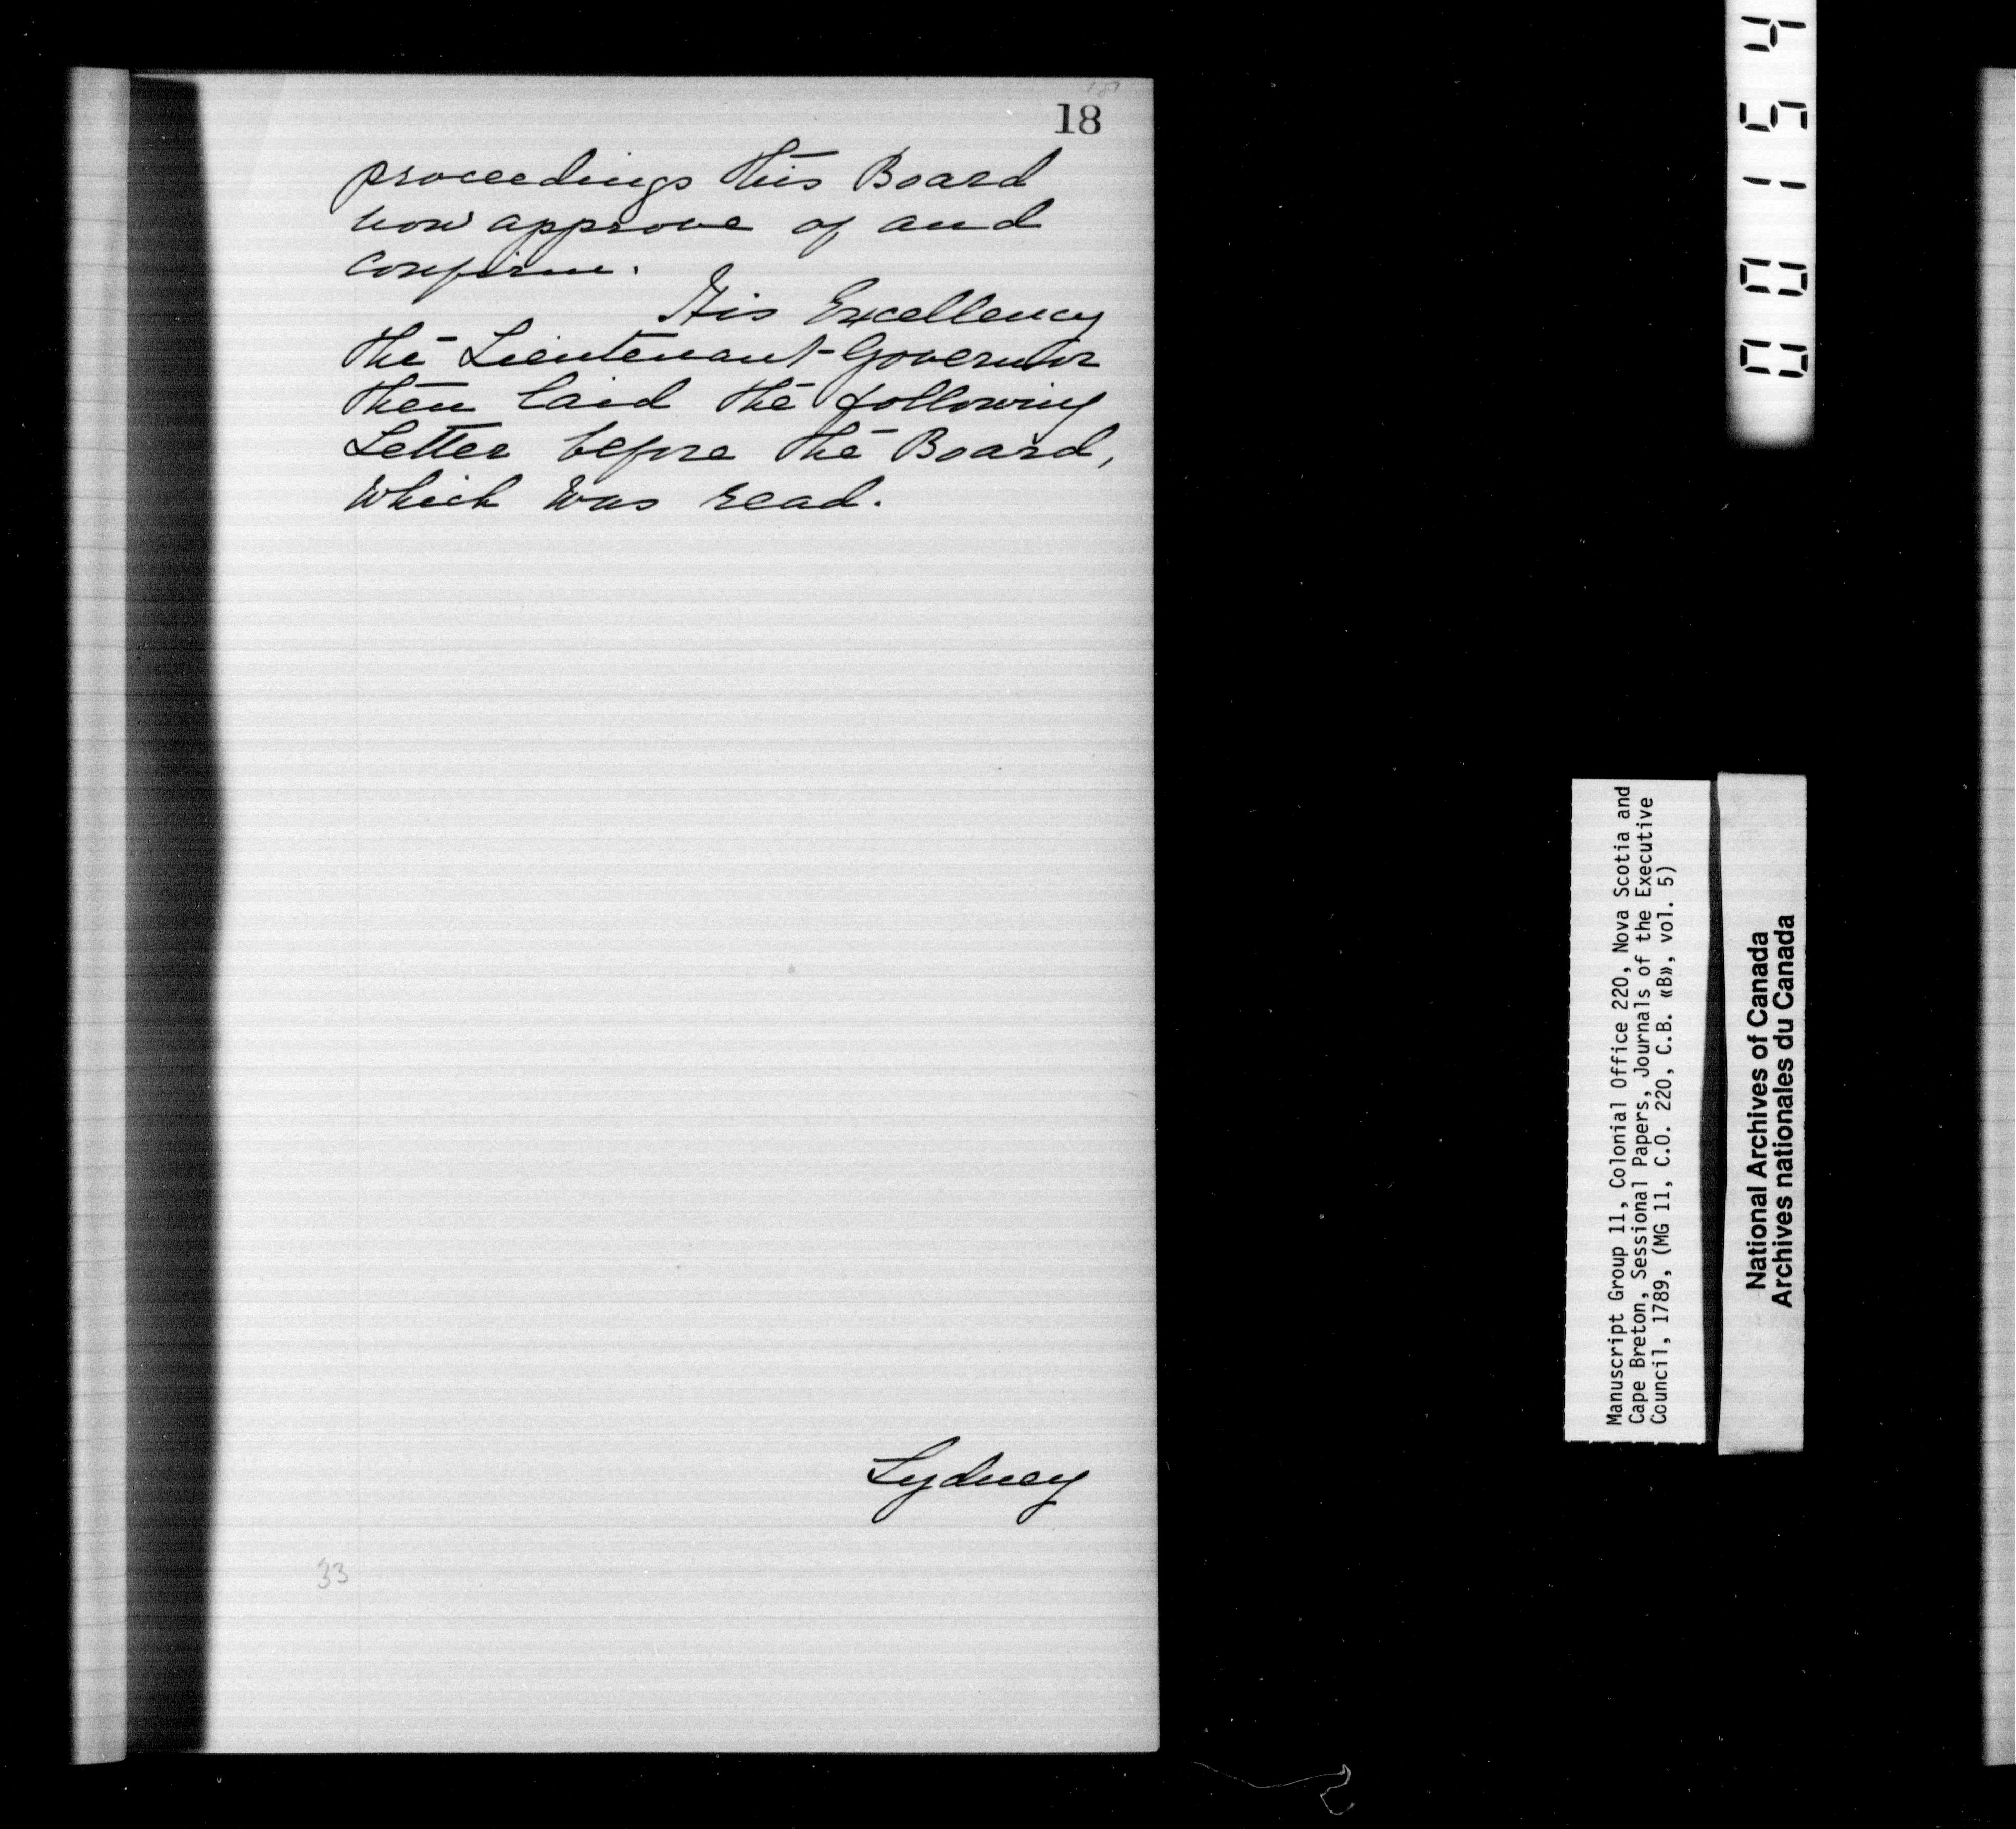 18
proceedings this Board
now approve of and
confirm.
His Excellency
the Lieutenant-Governor
then laid the following
Letter before the Board,
which was read.
Sydney
33
000154
Manuscript Group 11, Colonial Office 220, Nova Scotia and
Cape Breton, Sessional Papers, Journals of the Executive
Council, 1789, (MG 11, C.O. 220, C.B. «B», vol. 5)
National Archives of Canada
Archives nationales du Canada